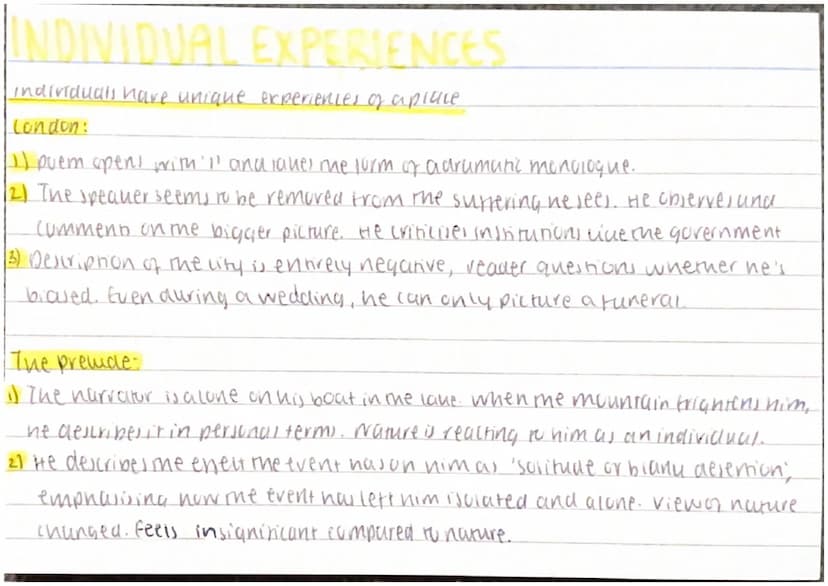 INDIVIDUAL EXPERIENCES
individuals have unique experiences of a place
London:
1) poem opens with 'I' and takes the form of a dramatic monologue.
2) The speaker seems to be removed from the suffering he sees. He observes and
comments on the bigger picture. He criticises institutions like the government
3) Description of the city is entirely negative, reader questions whether he's
biased. Even during a wedding, he can only picture a funeral.
The prelude:
1) The narrator is alone on his boat in the lake. When the mountain frightens him,
he describes it in personal terms. Nature is reacting to him as an individual.
2) He describes the effect the event has on him as 'solitude or blank desertion',
emphasising how the event has left him isolated and alone. View of nature
changed. Feels insignificant compared to nature.